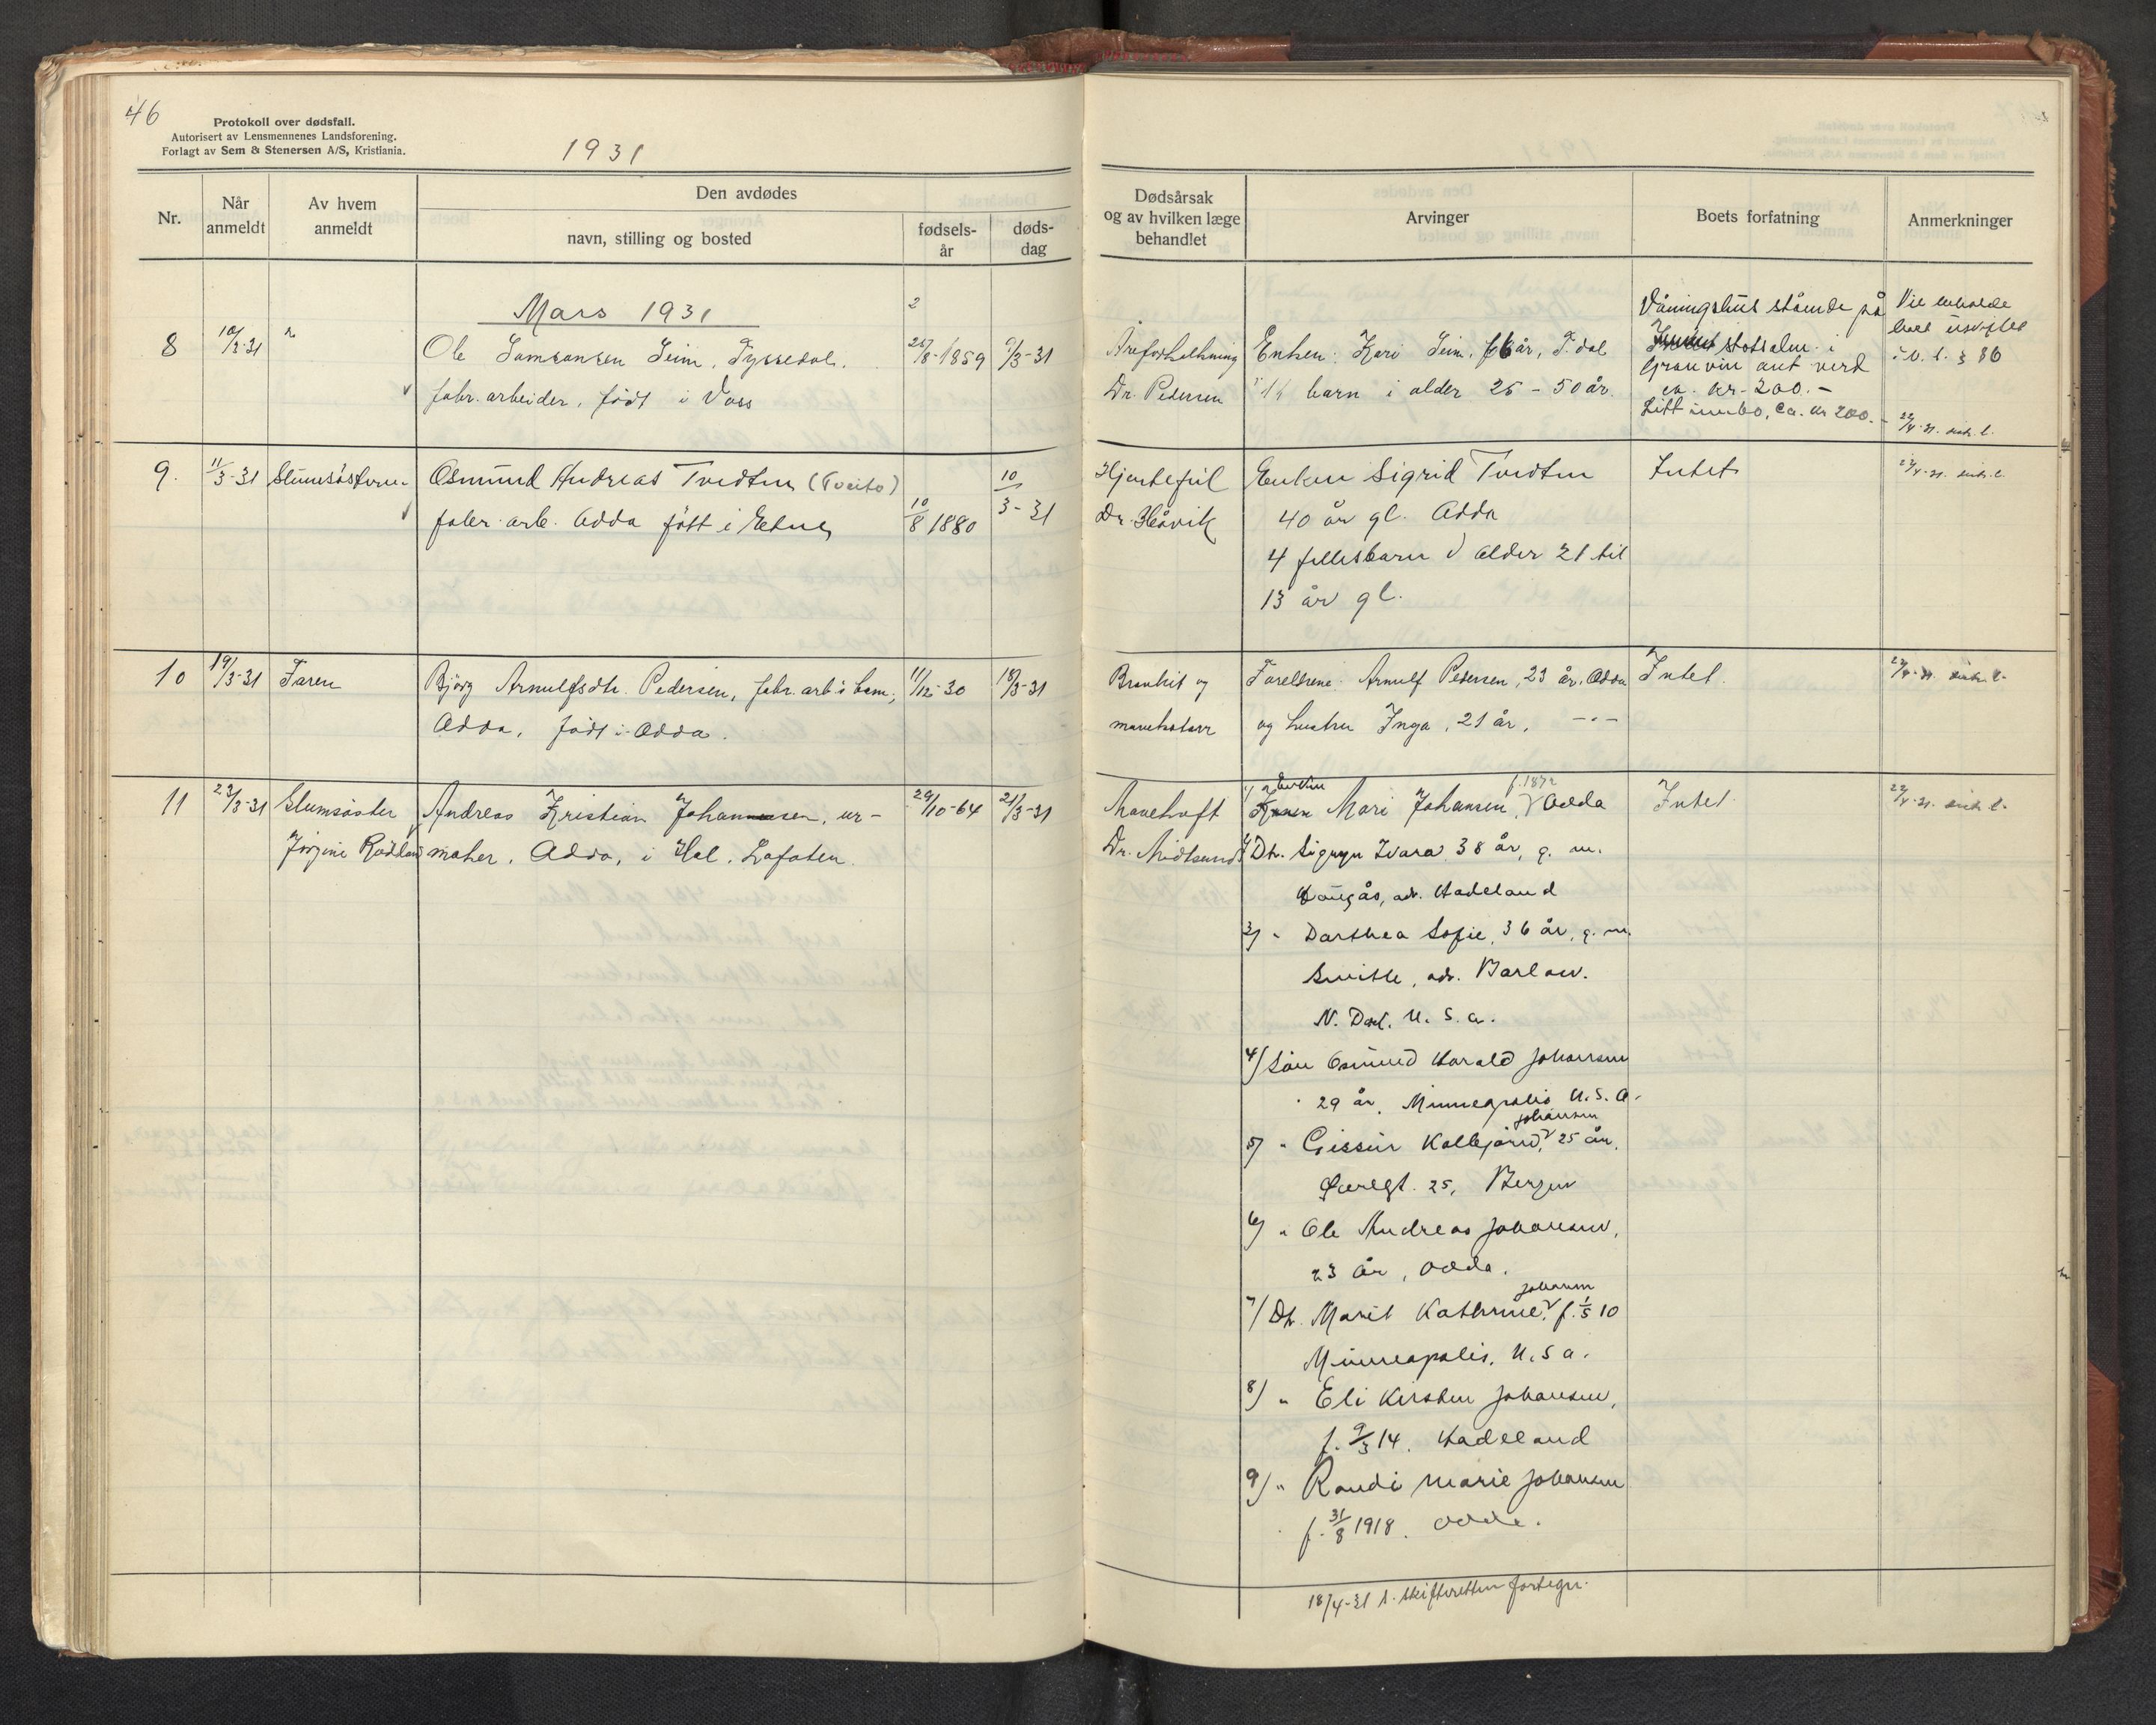 46
Protokoll over dødsfall.
Autorisert av Lensmennenes Landsforening.
Forlagt av Sem & Stenersen A/S, Kristiania.
1931
Nr.
Når anmeldt
Av hvem anmeldt
Den avdødes
navn, stilling og bosted
fødsels-år
døds-dag
Mars 1931
8
10/3-31
Ole Samsonsen Seim, Tyssedal.
25/8-1859
9/3-31
fabr. arbeider, født i Voss
9.
11/3-31
Osmund Andreas Tvedten (Tveito)
10/8 1880
10/3-31
fabr. arb. Odda født i Etne
10
19/3-31
Faren
Bjørg Arnulfsdtr. Pedersen, fabr. arb's barn,
11/12-30
18/3-31
Odda, født i Odda.
11
23/3-31
Slumsøster
Andreas Kristian Johansen, ur-
29/10-64
21/3-31
Jørgine Røddland
maker, Odda, i Hol, Lofoten.
Dødsårsak
og av hvilken læge
behandlet
Arvinger
Boets forfatning
Anmerkninger
Åreforkalkning
Dr. Pedersen
Enken: Kari Seim, år, T.dal
barn i alder 25 - 50 år.
Våningshus stående på
i
Granvin ant. verd
ca. kr. 200.-
Litt innbo, ca. kr 200.-
Vil beholde
boet uskiftet
22/4-31. innb. l.
Hjertefeil
Dr. Håvik
Enken Sigrid Tvedten
40 år gl. Odda
4 fellesbarn i alder 21 til
13 år gl.
Intet
22/4-31. innb. l.
Bronkit og
mavekatarr
Foreldrene: Arnulf Pedersen, 23 år, Odda
og hustru Inga, 21 år, -"-
Intet.
22/4-31. innb. l.
Mavekreft
Dr. Midtsund
1) Enken Mari Johansen, f. 1872 Odda
2) Dtr. Sigryn Ivara 38 år, g. m.
adr. Hadeland
3) " Darthea Sofie, 36 år, g. m.
Smitte, adr. Barlow.
N. Dak. U. S. a.
4) Søn Osmund Harald Johansen
29 år, Minneapolis U. S. A.
5) " Gissur Kolbjørn Johansen, 25 år,
25, Bergen
6) " Ole Andreas Johansen,
23 år, Odda.
7) Dt. Marit Kathrine Johansen, f. 1/5 10
Minneapolis, U. S a.
8) " Eli Kirsten Johansen,
f. 9/3 14. Hadeland
9) " Randi Marie Johansen
f. 31/8 1918. Odda.
Intet
22/4-31. innb. l.
18/4-31 t. skifteretten fortegn.